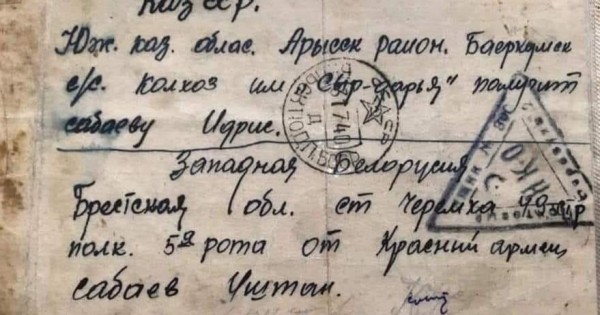 Каз ССР.
Юж. каз. облас. Арысск район. Баеркумск
с/с. колхоз им "Сыр-Дарья" получит
сабаеву Идрис.
Западная Белорусия
Брестская обл. ст Черемха 49 стр
полк. 5я рота от Красний армец
сабаев Уштап.
НКО